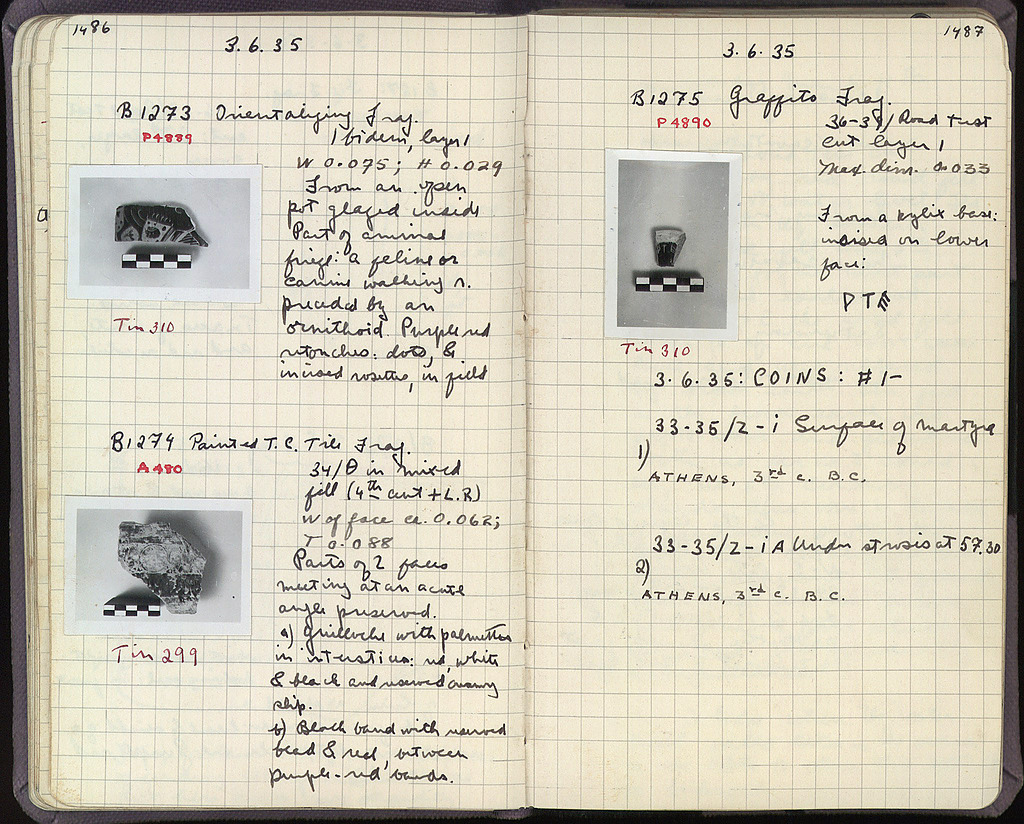 1486
3. 6. 35
B 1273 Orientalizing Frag.
P 4889
1 bidem, layer 1
W 0.075; H 0.029
From an open
pot glazed inside
Part of animal
frieze: a feline or
canine walking r.
preceded by an
ornithoid. Purple red
retouches: dots, &
incised rosettes, in field
Tin 310
B 1274 Painted T.C. Tile Frag.
A 480
34/Θ in mixed
fill (4th cent + L.R)
W of face ca. 0.062;
T 0.088
Parts of 2 faces
meeting at an acute
angle preserved.
a) Guilloche with palmettes
in interstices: red, white
& black and reserved creamy
slip.
b) Black band with reserved
bead & reel, between
purple-red bands.
Tin 299
1487
3. 6. 35
B 1275 Graffito Frag.
P 4890
Road test
cut layer 1
Max. dim. 0.033
From a kylix base:
incised on lower
face:
Tin 310
3. 6. 35: COINS: # 1-
33-35/Z-i Surface of martyra
1)
ATHENS, 3rd c. B.C.
33-35/Z-i A Under strosis at 57.30
2)
ATHENS, 3rd c. B.C.